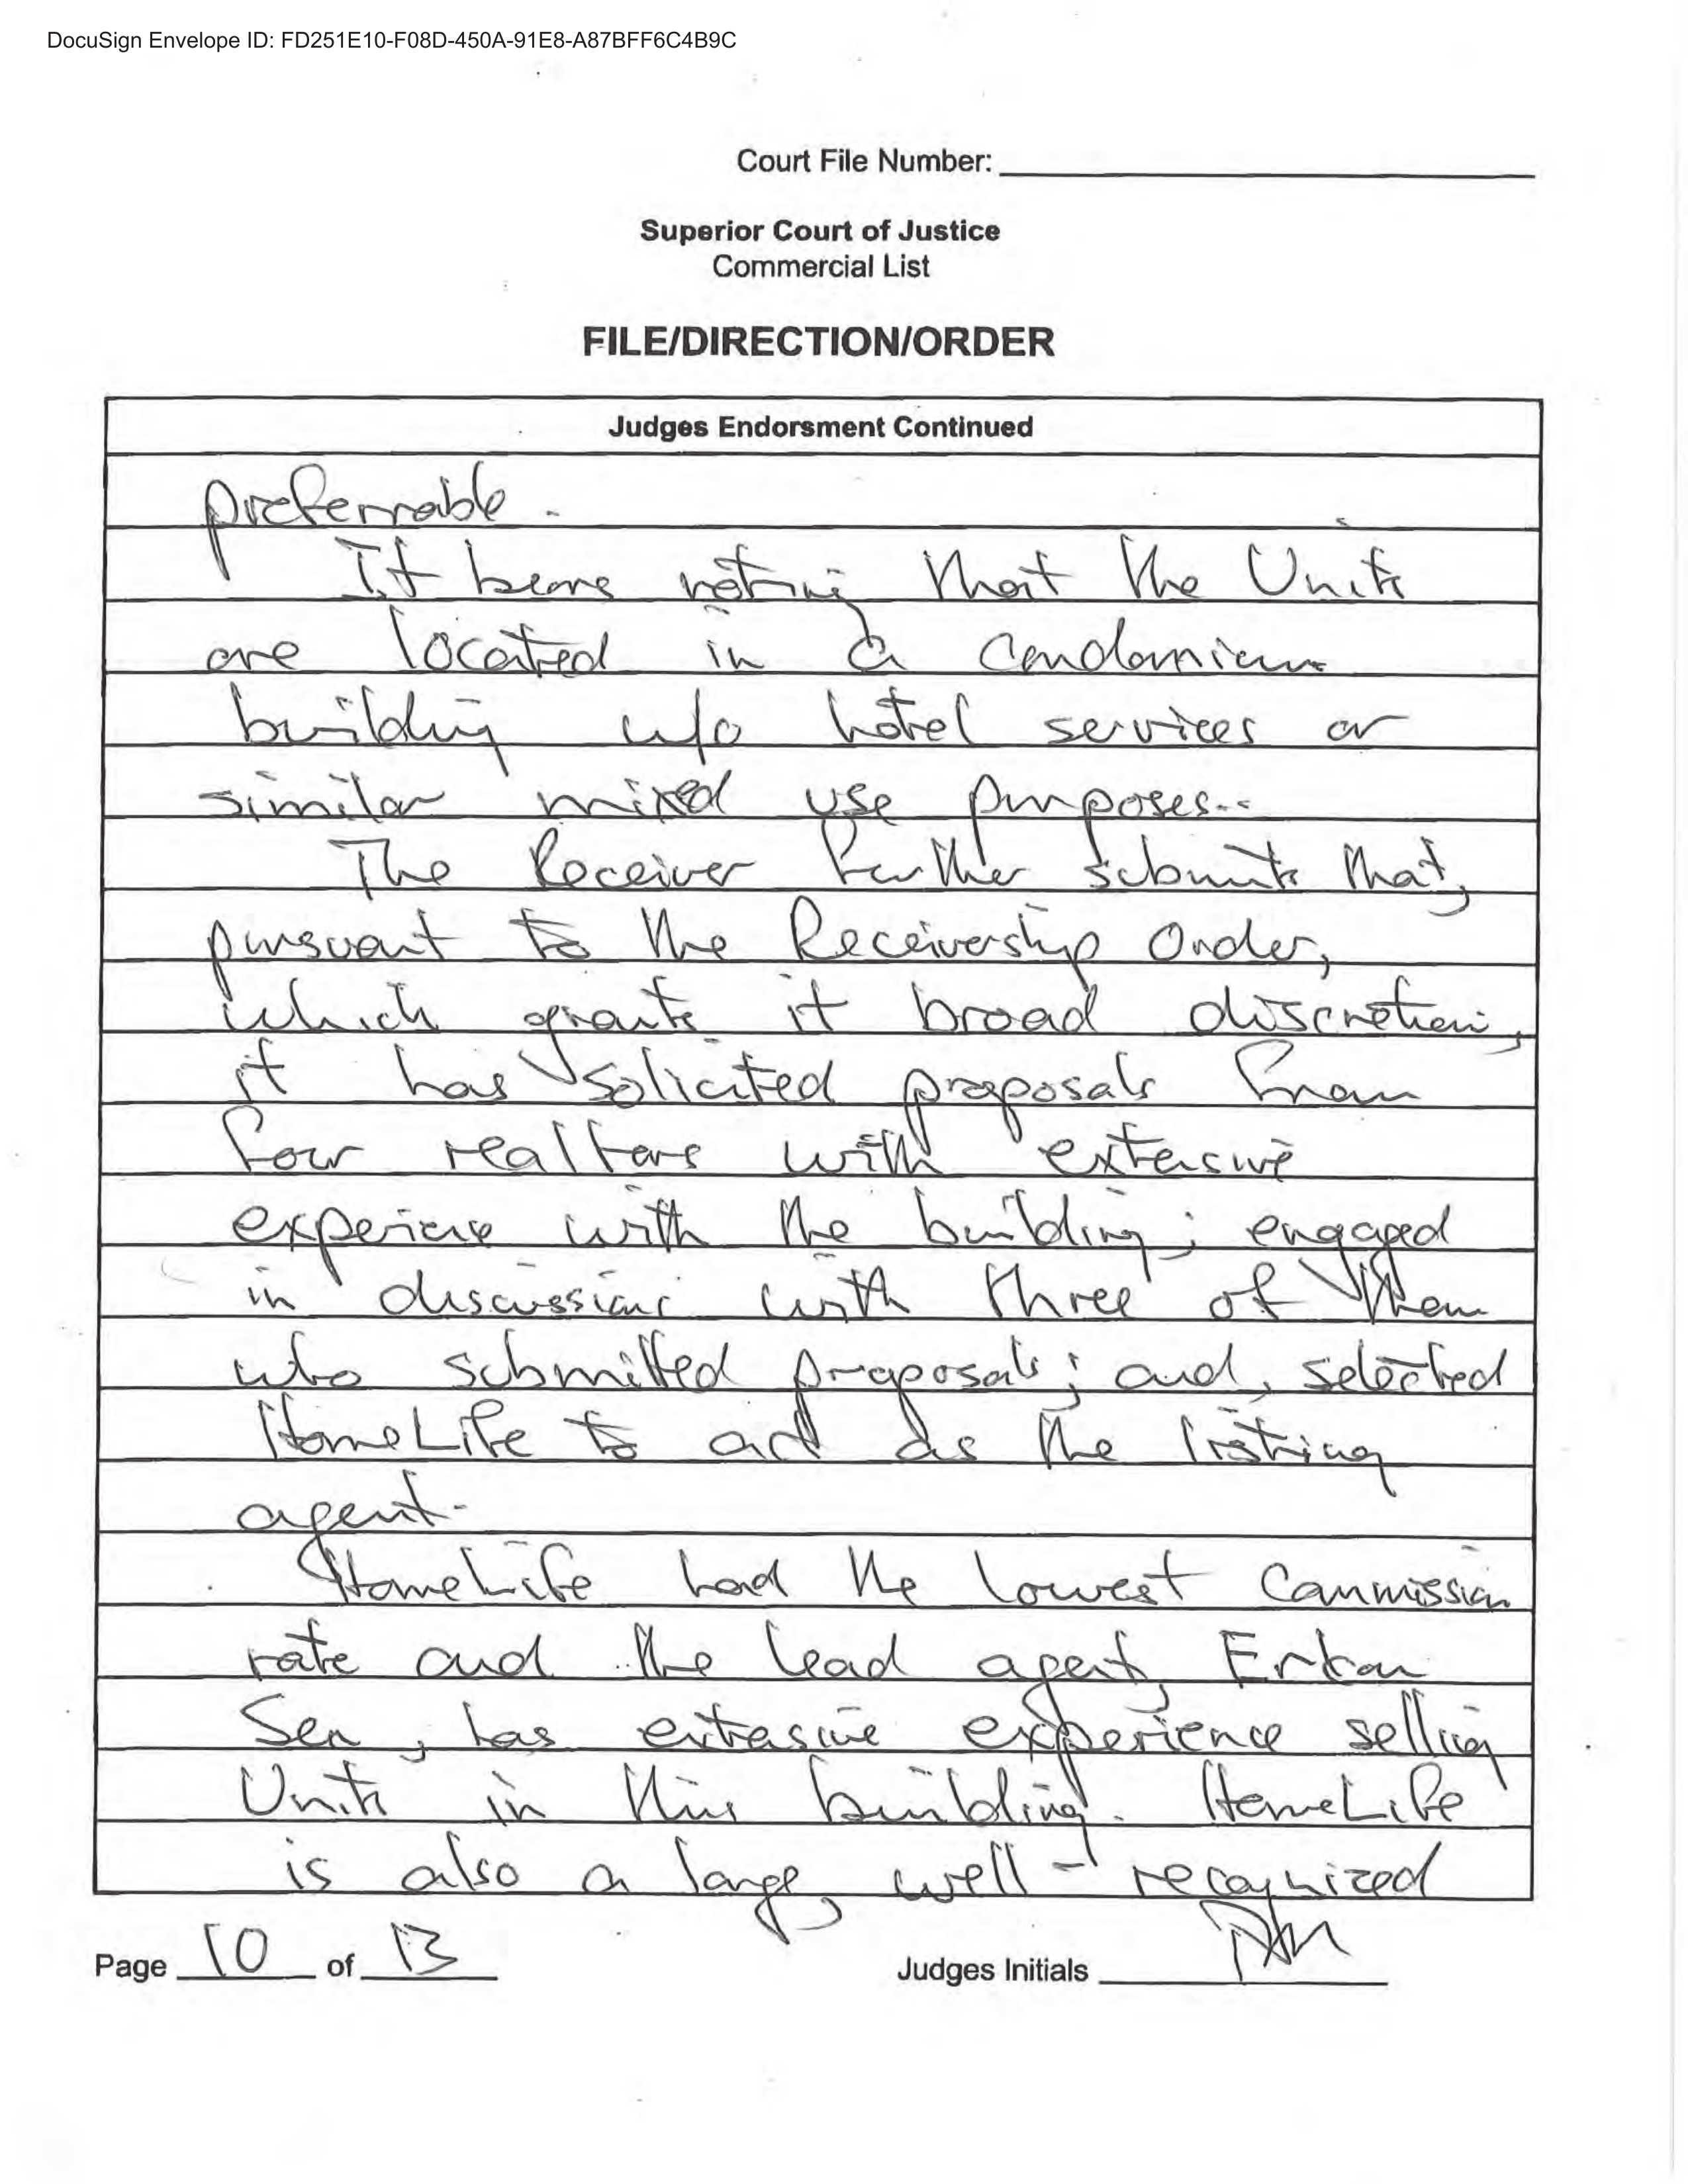 DocuSign Envelope ID: FD251E10-F08D-450A-91E8-A87BFF6C4B9C
Court File Number:
Superior Court of Justice
Commercial List
FILE/DIRECTION/ORDER
Judges Endorsment Continued
preferrable.
It bears noting that the Units
are located in a condominium
building w/o hotel services or
similar mixed use purposes.
The Receiver further submits that,
pursuant to the Receivership Order,
which grants it broad discretion,
it has solicited proposals from
four realtors with extensive
experience with the building; engaged
in discussions with three of them
who submitted proposals; and, selected
HomeLife to act as the listing
agent.
HomeLife had the lowest commission
rate and the lead agent, Erkan
Sen, has extensive experience selling
Units in this building. HomeLife
is also a large, well-recognized
Page 10 of 13
Judges Initials